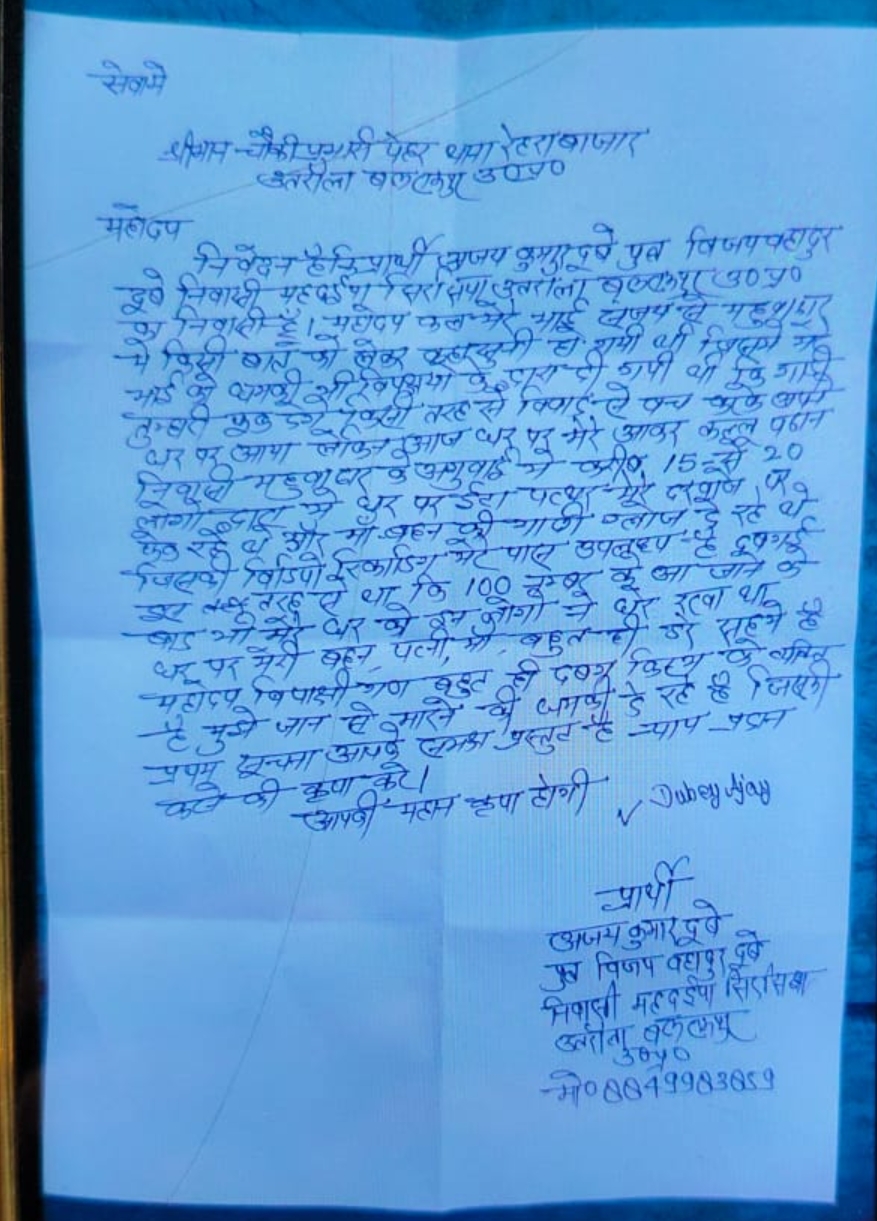 सेवामे
श्रीमान चौकी प्रभारी पेहर थाना रेहराबाजार
उतरौला बलरामपुर उ०प्र०
महोदय
निवेदन है कि प्रार्थी अजय कुमार दूबे पुत्र विजय बहादुर
दूबे निवासी महदईया सिरसिया उतरौला बलरामपुर उ०प्र०
का निवासी है। महोदय कल मेरे भाई संजय से महुआधार
मे किसी बात को लेकर कहासुनी हो गयी थी जिसमे मेरे
भाई को धमकी भी विपक्षीयो के द्वारा दी गयी थी कि
किसी तरह से विवाद से बच
घर पर आया लेकिन आज घर पर मेरे आकर कल्लू पठान
निवासी महुआधार के अगुवाई मे करीब 15 से 20
लोगो द्वारा मेरे घर पर ईटा पत्थर मेरे दरवाजे पर
फेक रहे थे और माँ बहन की गाली गलौज दे रहे थे
जिसकी विडियो रिकार्डिंग मेरे पास उपलब्ध है
इस तरह से था कि 100 नम्बर के आ जाने के
बाद भी मेरे घर को इन लोगो ने घेर रखा था
घर पर मेरी बहन, पत्नी, माँ, बहुत ही डरे सहमे है
महोदय विपक्षी गण बहुत ही दबंग किस्म के व्यक्ति
है मुझे जान से मारने की धमकी दे रहे है जिसकी
प्रथम सूचना आपके समक्ष प्रस्तुत है न्याय प्रदान
करने की कृपा करे।
आपकी महान कृपा होगी
Dubey Ajay
प्रार्थी
अजय कुमार दूबे
पुत्र विजय बहादुर दूबे
निवासी महदईया सिरसिया
उतरौला बलरामपुर
उ०प्र०
मो० 8849983859